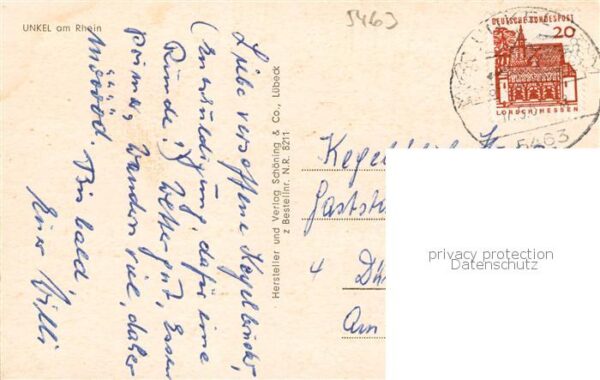 UNKEL am Rhein
5463
DEUTSCHE BUNDESPOST
20
LORSCH/HESSEN
5463
Liebe versoffene Kegelbrüder,
(Entschuldigung, dafür eine
Runde!) Wetter gut, Essen
prima, Wandern viel, daher
müde. Bis bald
Euer Willi
Hersteller und Verlag Schöning & Co., Lübeck
z Bestellnr. N.R. 8211
Gaststä
4 Dü
Am
privacy protection
Datenschutz